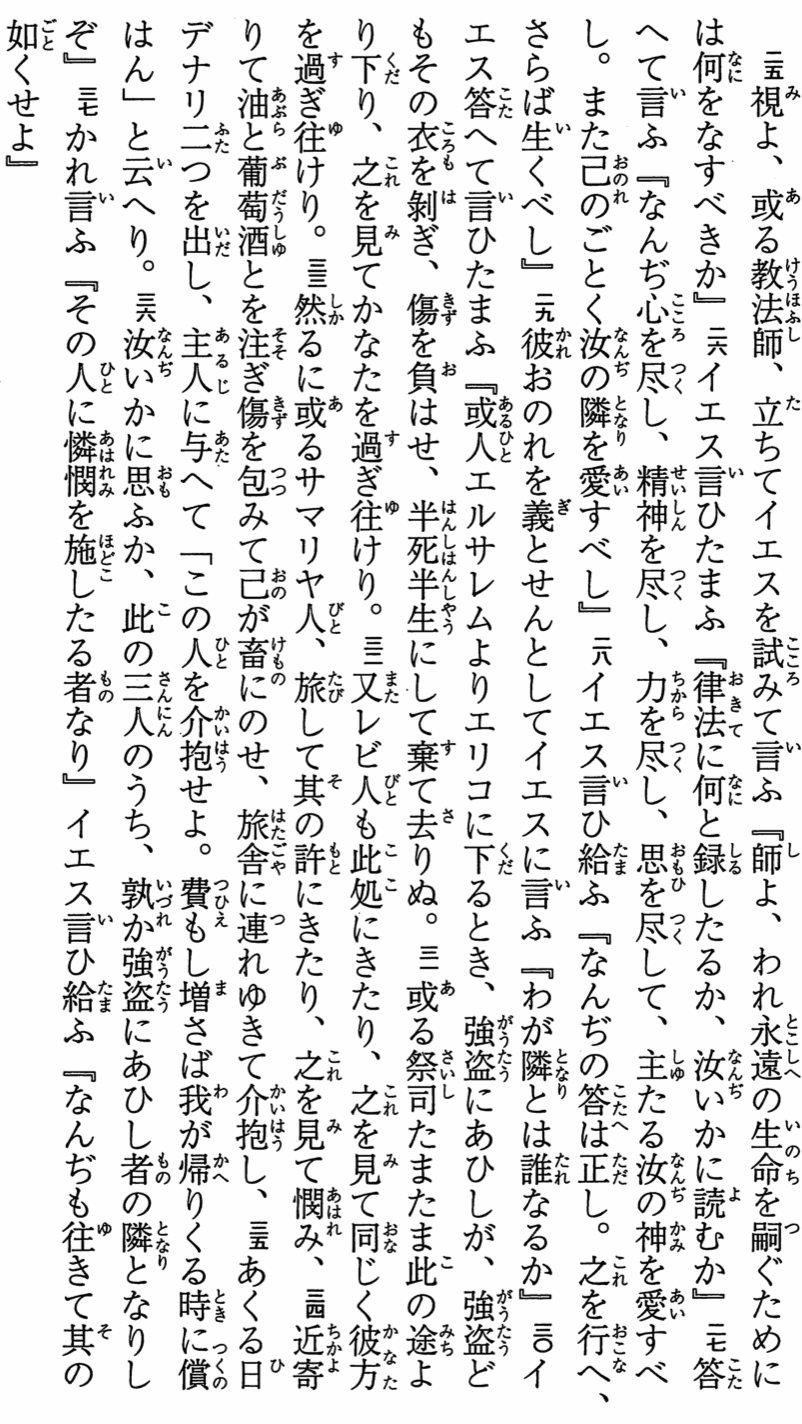 二五視よ、或る教法師、立ちてイエスを試みて言ふ『師よ、われ永遠の生命を嗣ぐために
は何をなすべきか』二六イエス言ひたまふ『律法に何と録したるか、汝いかに読むか』二七答
へて言ふ『なんぢ心を尽し、精神を尽し、力を尽し、思を尽して、主たる汝の神を愛すべ
し。また己のごとく汝の隣を愛すべし』二八イエス言ひ給ふ『なんぢの答は正し。之を行へ、
さらば生くべし』二九彼おのれを義とせんとしてイエスに言ふ『わが隣とは誰なるか』三〇イ
エス答へて言ひたまふ『或人エルサレムよりエリコに下るとき、強盗にあひしが、強盗ど
もその衣を剝ぎ、傷を負はせ、半死半生にして棄て去りぬ。三一或る祭司たまたま此の途よ
り下り、之を見てかなたを過ぎ往けり。三二又レビ人も此処にきたり、之を見て同じく彼方
を過ぎ往けり。三三然るに或るサマリヤ人、旅して其の許にきたり、之を見て憫み、三四近寄
りて油と葡萄酒とを注ぎ傷を包みて己が畜にのせ、旅舎に連れゆきて介抱し、三五あくる日
デナリ二つを出し、主人に与へて「この人を介抱せよ。費もし増さば我が帰りくる時に償
はん」と云へり。三六汝いかに思ふか、此の三人のうち、孰か強盗にあひし者の隣となりし
ぞ』三七かれ言ふ『その人に憐憫を施したる者なり』イエス言ひ給ふ『なんぢも往きて其の
如くせよ』